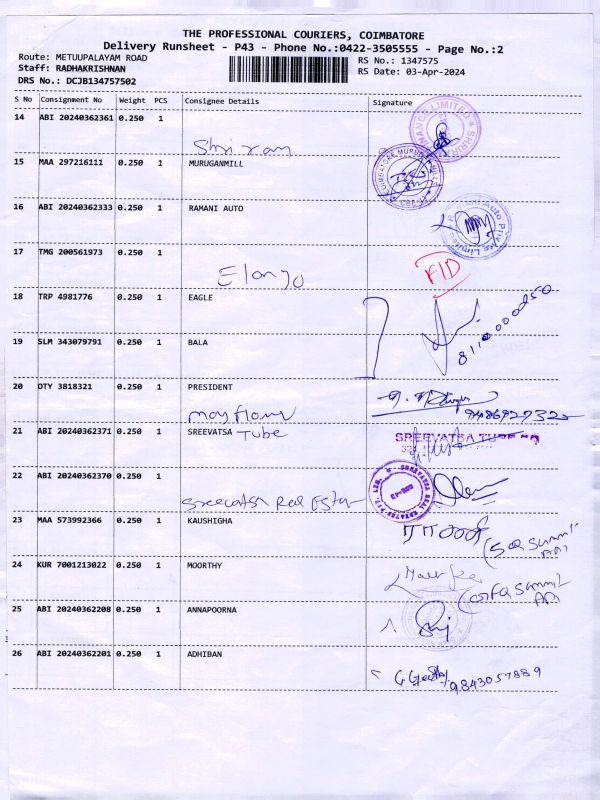 THE PROFESSIONAL COURIERS, COIMBATORE
Delivery Runsheet - P43 - Phone No.:0422-3505555 - Page No.:2
Route: METUUPALAYAM ROAD
Staff: RADHAKRISHNAN
DRS No.: DCJB134757502
RS No.: 1347575
RS Date: 03-Apr-2024
S No Consignment No Weight PCS Consignee Details Signature
14 ABI 20240362361 0.250 1
Shriram
15 MAA 297216111 0.250 1 MURUGANMILL
16 ABI 20240362333 0.250 1 RAMANI AUTO
17 TMG 200561973 0.250 1
Elango
FID
18 TRP 4981776 0.250 1 EAGLE
8110000250
19 SLM 343079791 0.250 1 BALA
20 OTY 3818321 0.250 1 PRESIDENT
mayflower
21 ABI 20240362371 0.250 1 SREEVATSA Tube
SREEVATSA TUBE
22 ABI 20240362370 0.250 1
Sreevatsa Real Estar
23 MAA 573992366 0.250 1 KAUSHIGHA
24 KUR 7001213022 0.250 1 MOORTHY
25 ABI 20240362208 0.250 1 ANNAPOORNA
26 ABI 20240362201 0.250 1 ADHIBAN
9843057889